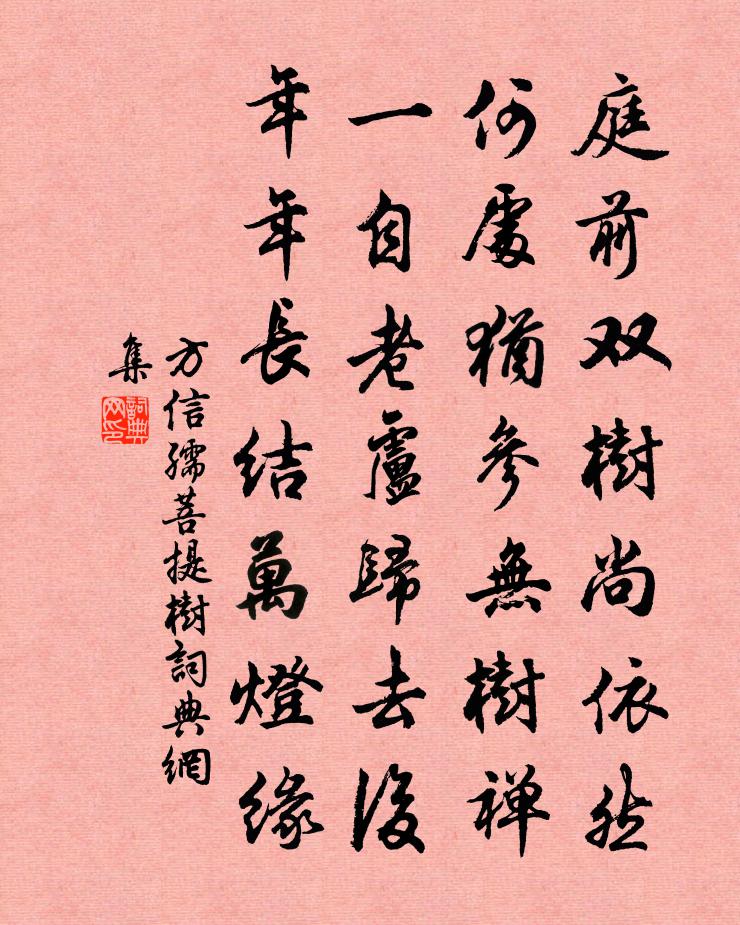 庭前双樹尚依然
何處猶參無樹禅
一自老盧歸去後
年年長結萬燈緣
方信孺菩提樹詞典網
集
詞典
网印